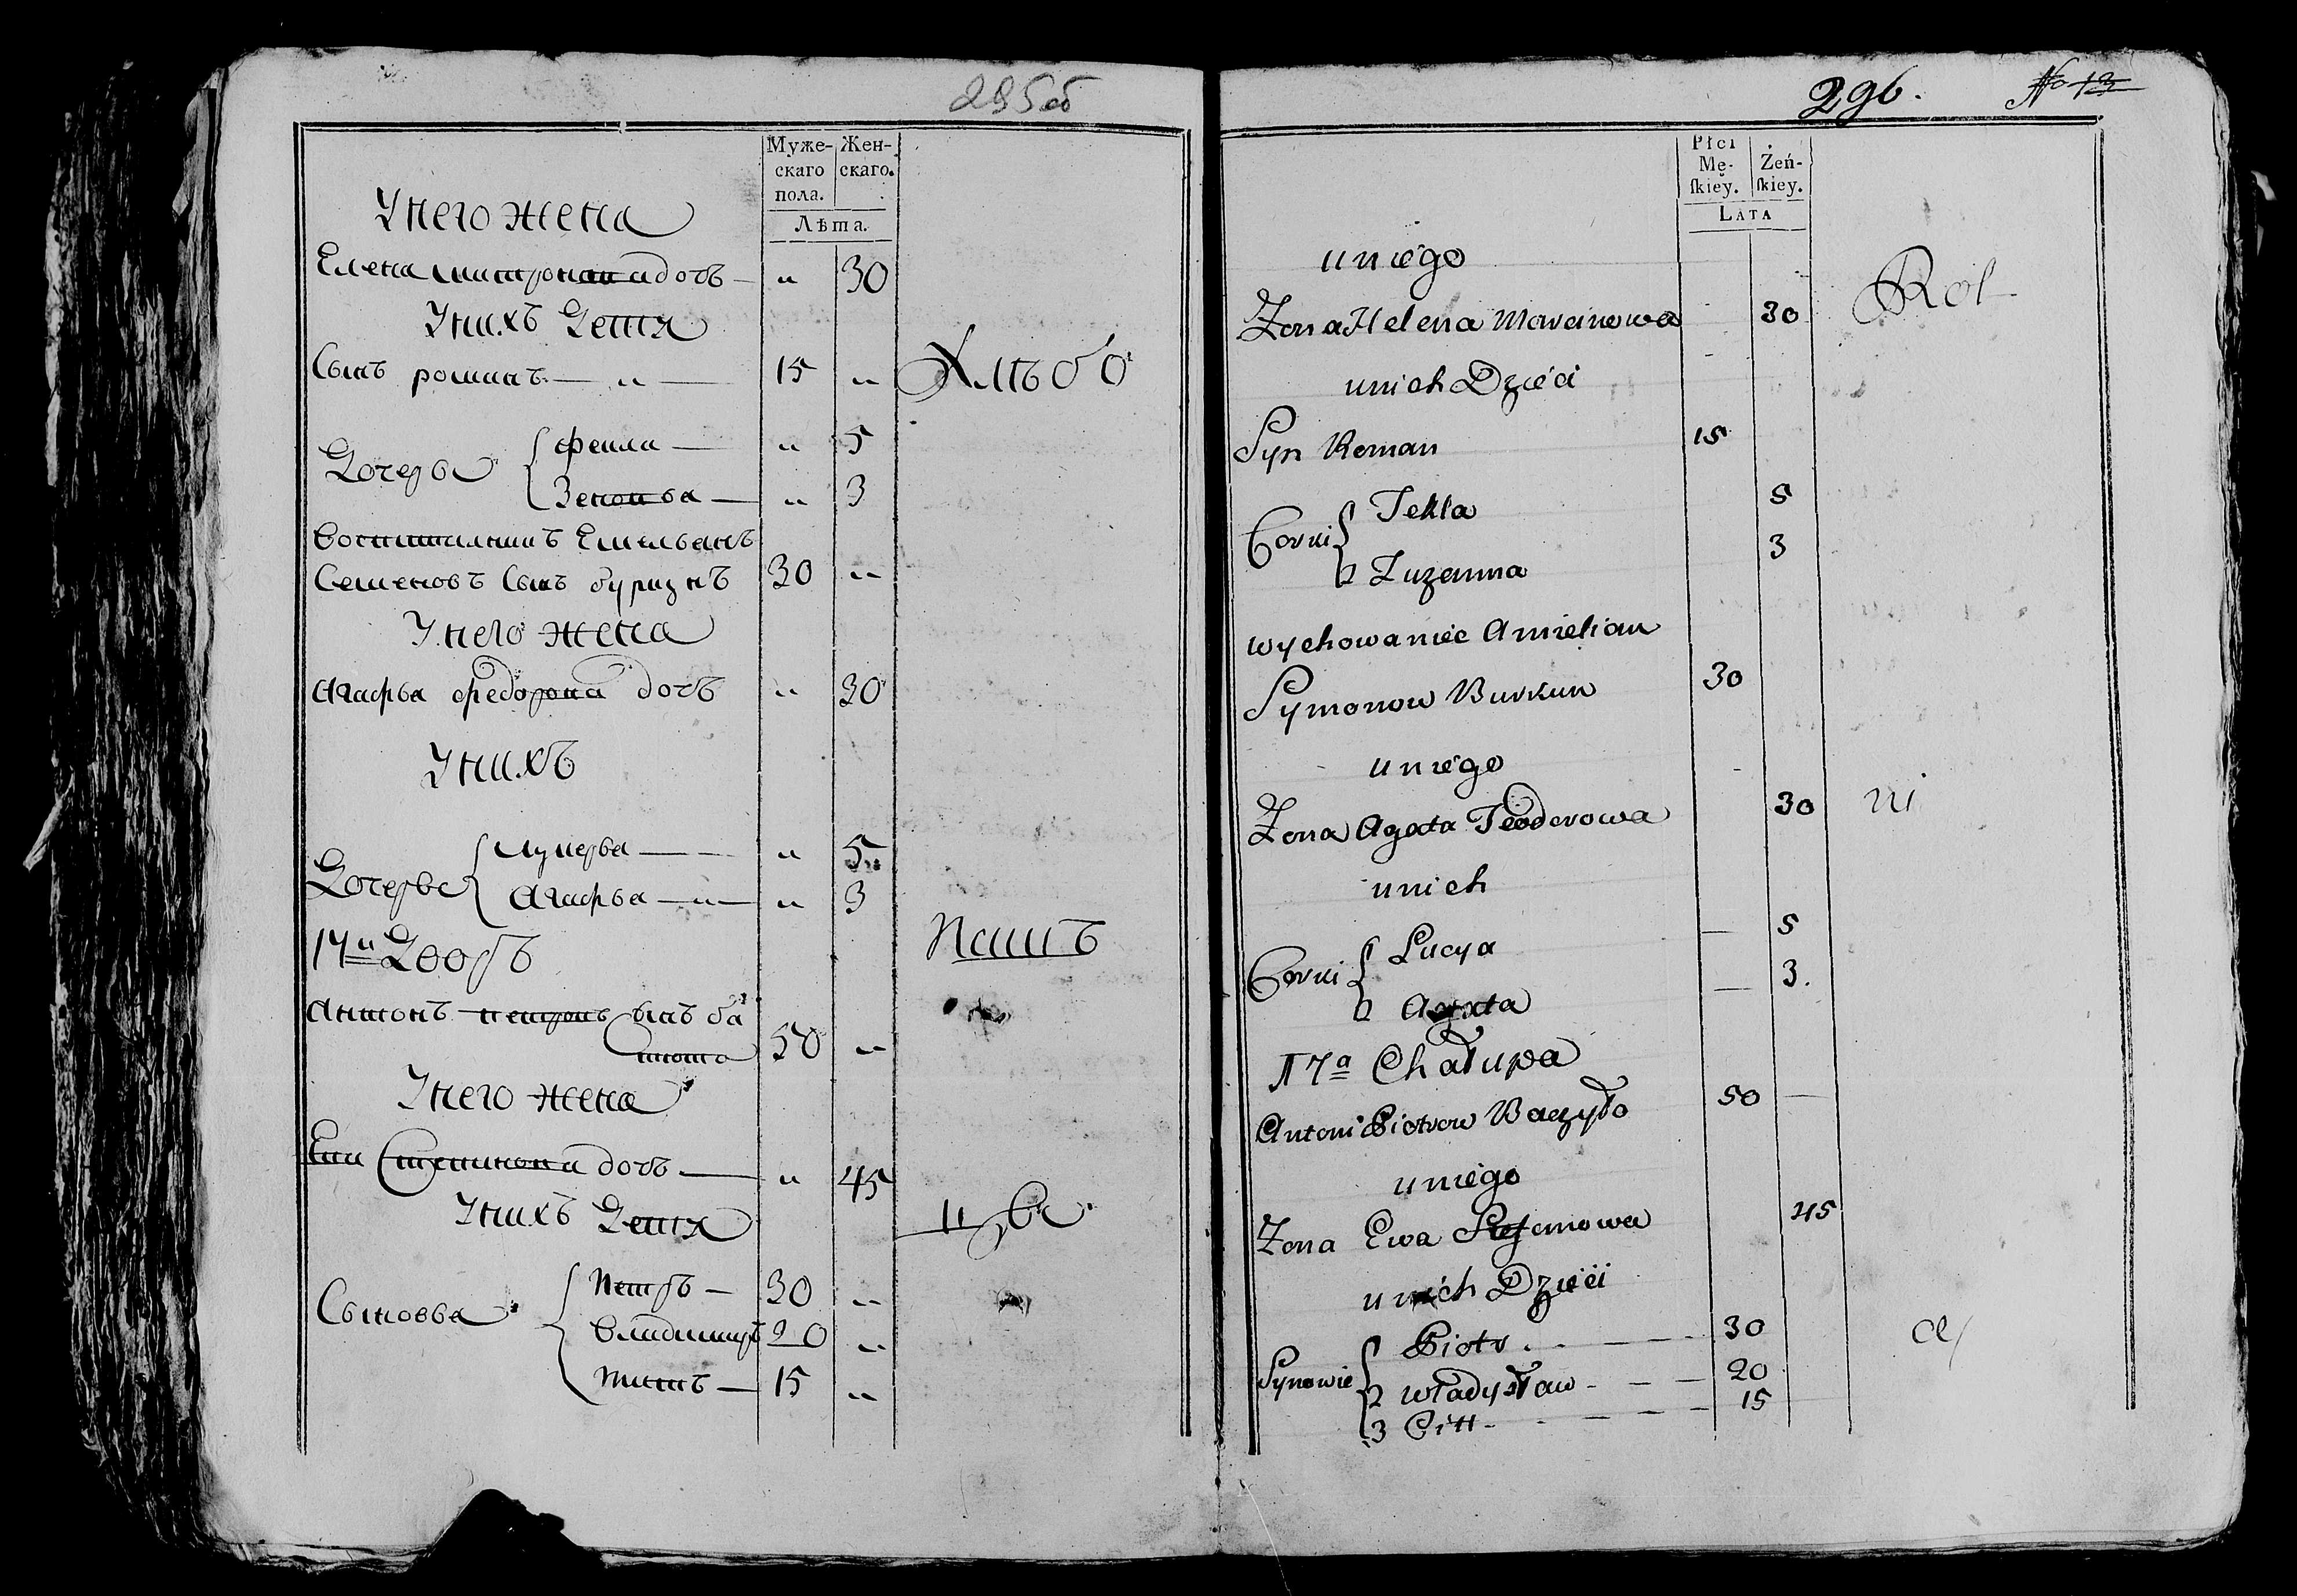 295об
Муже-
скаго
пола.
Жен-
скаго.
Лѣта.
У него жена
Елена митрона дочь — " 30
У нихъ Дети
Сынъ романъ — " — 15 "
Хлѣбо
Дочерьи
фекла — " 5
Зеновья — " 3
Воспитанникъ Емельянъ
Семеновъ Сынъ буркунъ 30 "
У него жена
Агафья федорова дочь " 30
У нихъ
Дочерье
Лукерья — " 5
Агафья — " — " 3
17й Дворъ
Пашъ
Антонъ петровъ сынъ ба
50 "
У него жена
Степанова дочь — " 45
У нихъ Дети
Сыновья
Петръ — 30 "
Владимиръ 20 "
Титъ — 15 "
296.
No 13
Płci
Mę-
ſkiey.
Żeń-
ſkiey.
LATA
u niego
Zona Helena Marcinowa 30
Rol
u nich Dzieci
Syn Roman 15
Corki
Tekla 5
2 Zuzanna 3
wychowaniec Amielian
Symonow Burkun 30
u niego
Zona Agata Teodorowa 30
ni
u nich
Corki
Lucya — 5
2 Agata — 3.
17a Chałupa
Antoni Piotrow Baczyło 50 —
u niego
Zona Ewa Stefanowa 45
u nich Dzieci
Synowie
Piotr . — — 30
2 Władysław - — — 20
3 Titt - - — — — 15
cy